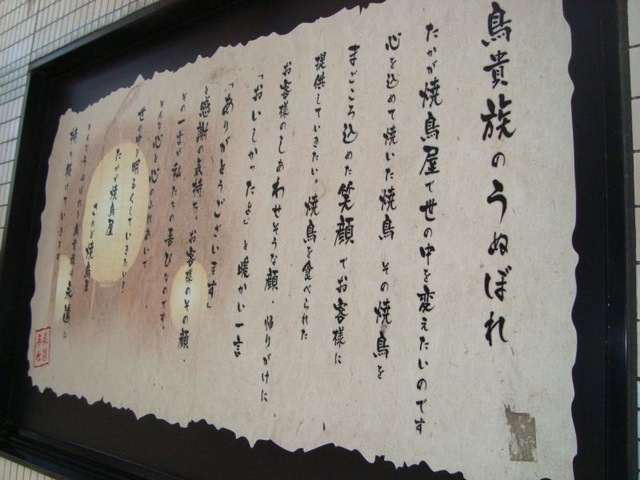 鳥貴族のうぬぼれ
たかが焼鳥屋で世の中を変えたいのです
心を込めて焼いた焼鳥 その焼鳥を
まごころ込めた笑顔でお客様に
提供していきたい。焼鳥を食べられた
お客様のしあわせそうな顔、帰りがけに
「おいしかったよ」と暖かい一言
「ありがとうございます」
と感謝の気持ち、お客様のその顔、
その一言が私たちの喜びなのです。
そんな心と心
世の中を明るくしていきたい
たかが焼鳥屋
されど焼鳥屋
そううぬぼれを鳥貴族は永遠に
持ち続けていきます